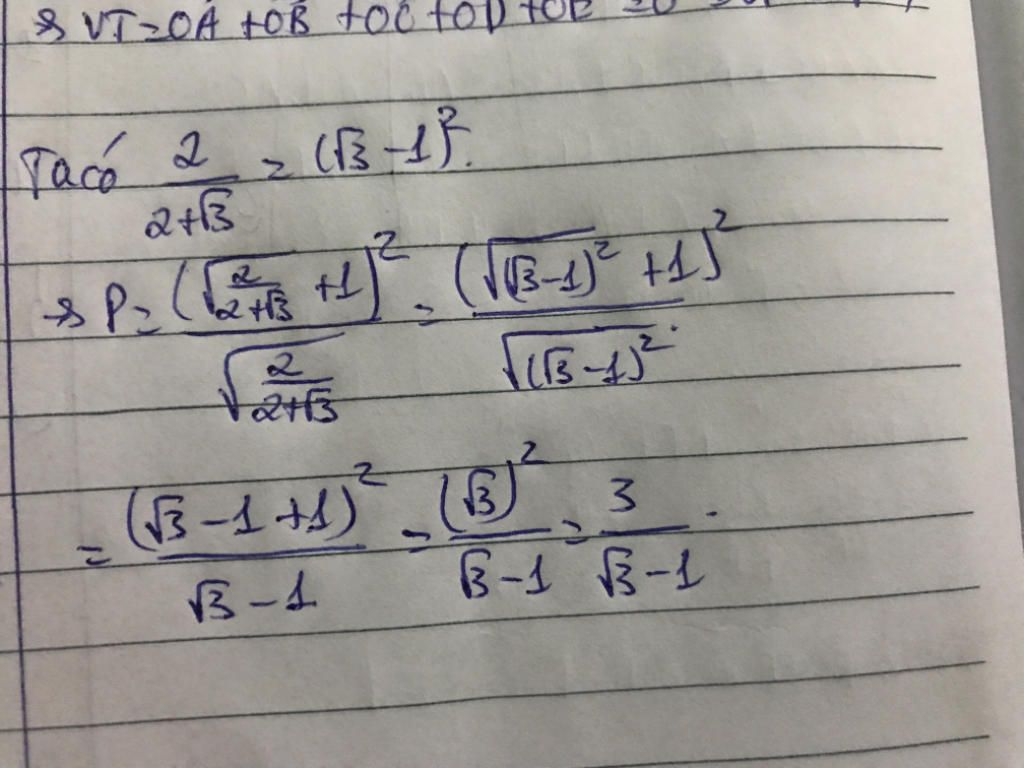 → VT = OA + OB + OC + OD + OE = 0
Ta có 2/(2+√3) = (√3 - 1)².
→ P = (√(2/(2+√3)) + 1)² / √(2/(2+√3)) = (√((√3-1)²) + 1)² / √((√3-1)²).
= (√3 - 1 + 1)² / (√3 - 1) = (√3)² / (√3 - 1) = 3 / (√3 - 1).